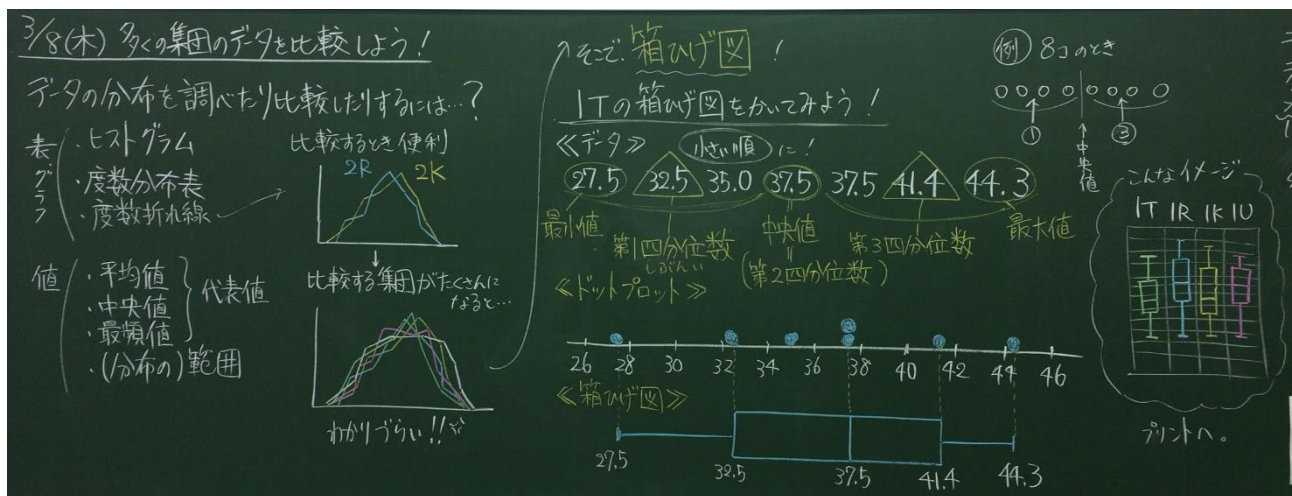 3/8(木) 多くの集団のデータを比較しよう!
データの分布を調べたり比較したりするには…?
表・グラフ
・ヒストグラム
・度数分布表
・度数折れ線
値
・平均値
・中央値
・最頻値
代表値
・(分布の)範囲
比較するとき便利
2R 2K
比較する集団がたくさんに
なると…
わかりづらい!!
そこで 箱ひげ図 !
1Tの箱ひげ図をかいてみよう!
≪データ≫ 小さい順に!
27.5 32.5 35.0 37.5 37.5 41.4 44.3
最小値
第1四分位数
しぶんい
中央値
(第2四分位数)
第3四分位数
最大値
≪ドットプロット≫
26 28 30 32 34 36 38 40 42 44 46
≪箱ひげ図≫
27.5 32.5 37.5 41.4 44.3
例 8コのとき
① ③
中央値
こんなイメージ
1T 1R 1K 1U
プリントへ。